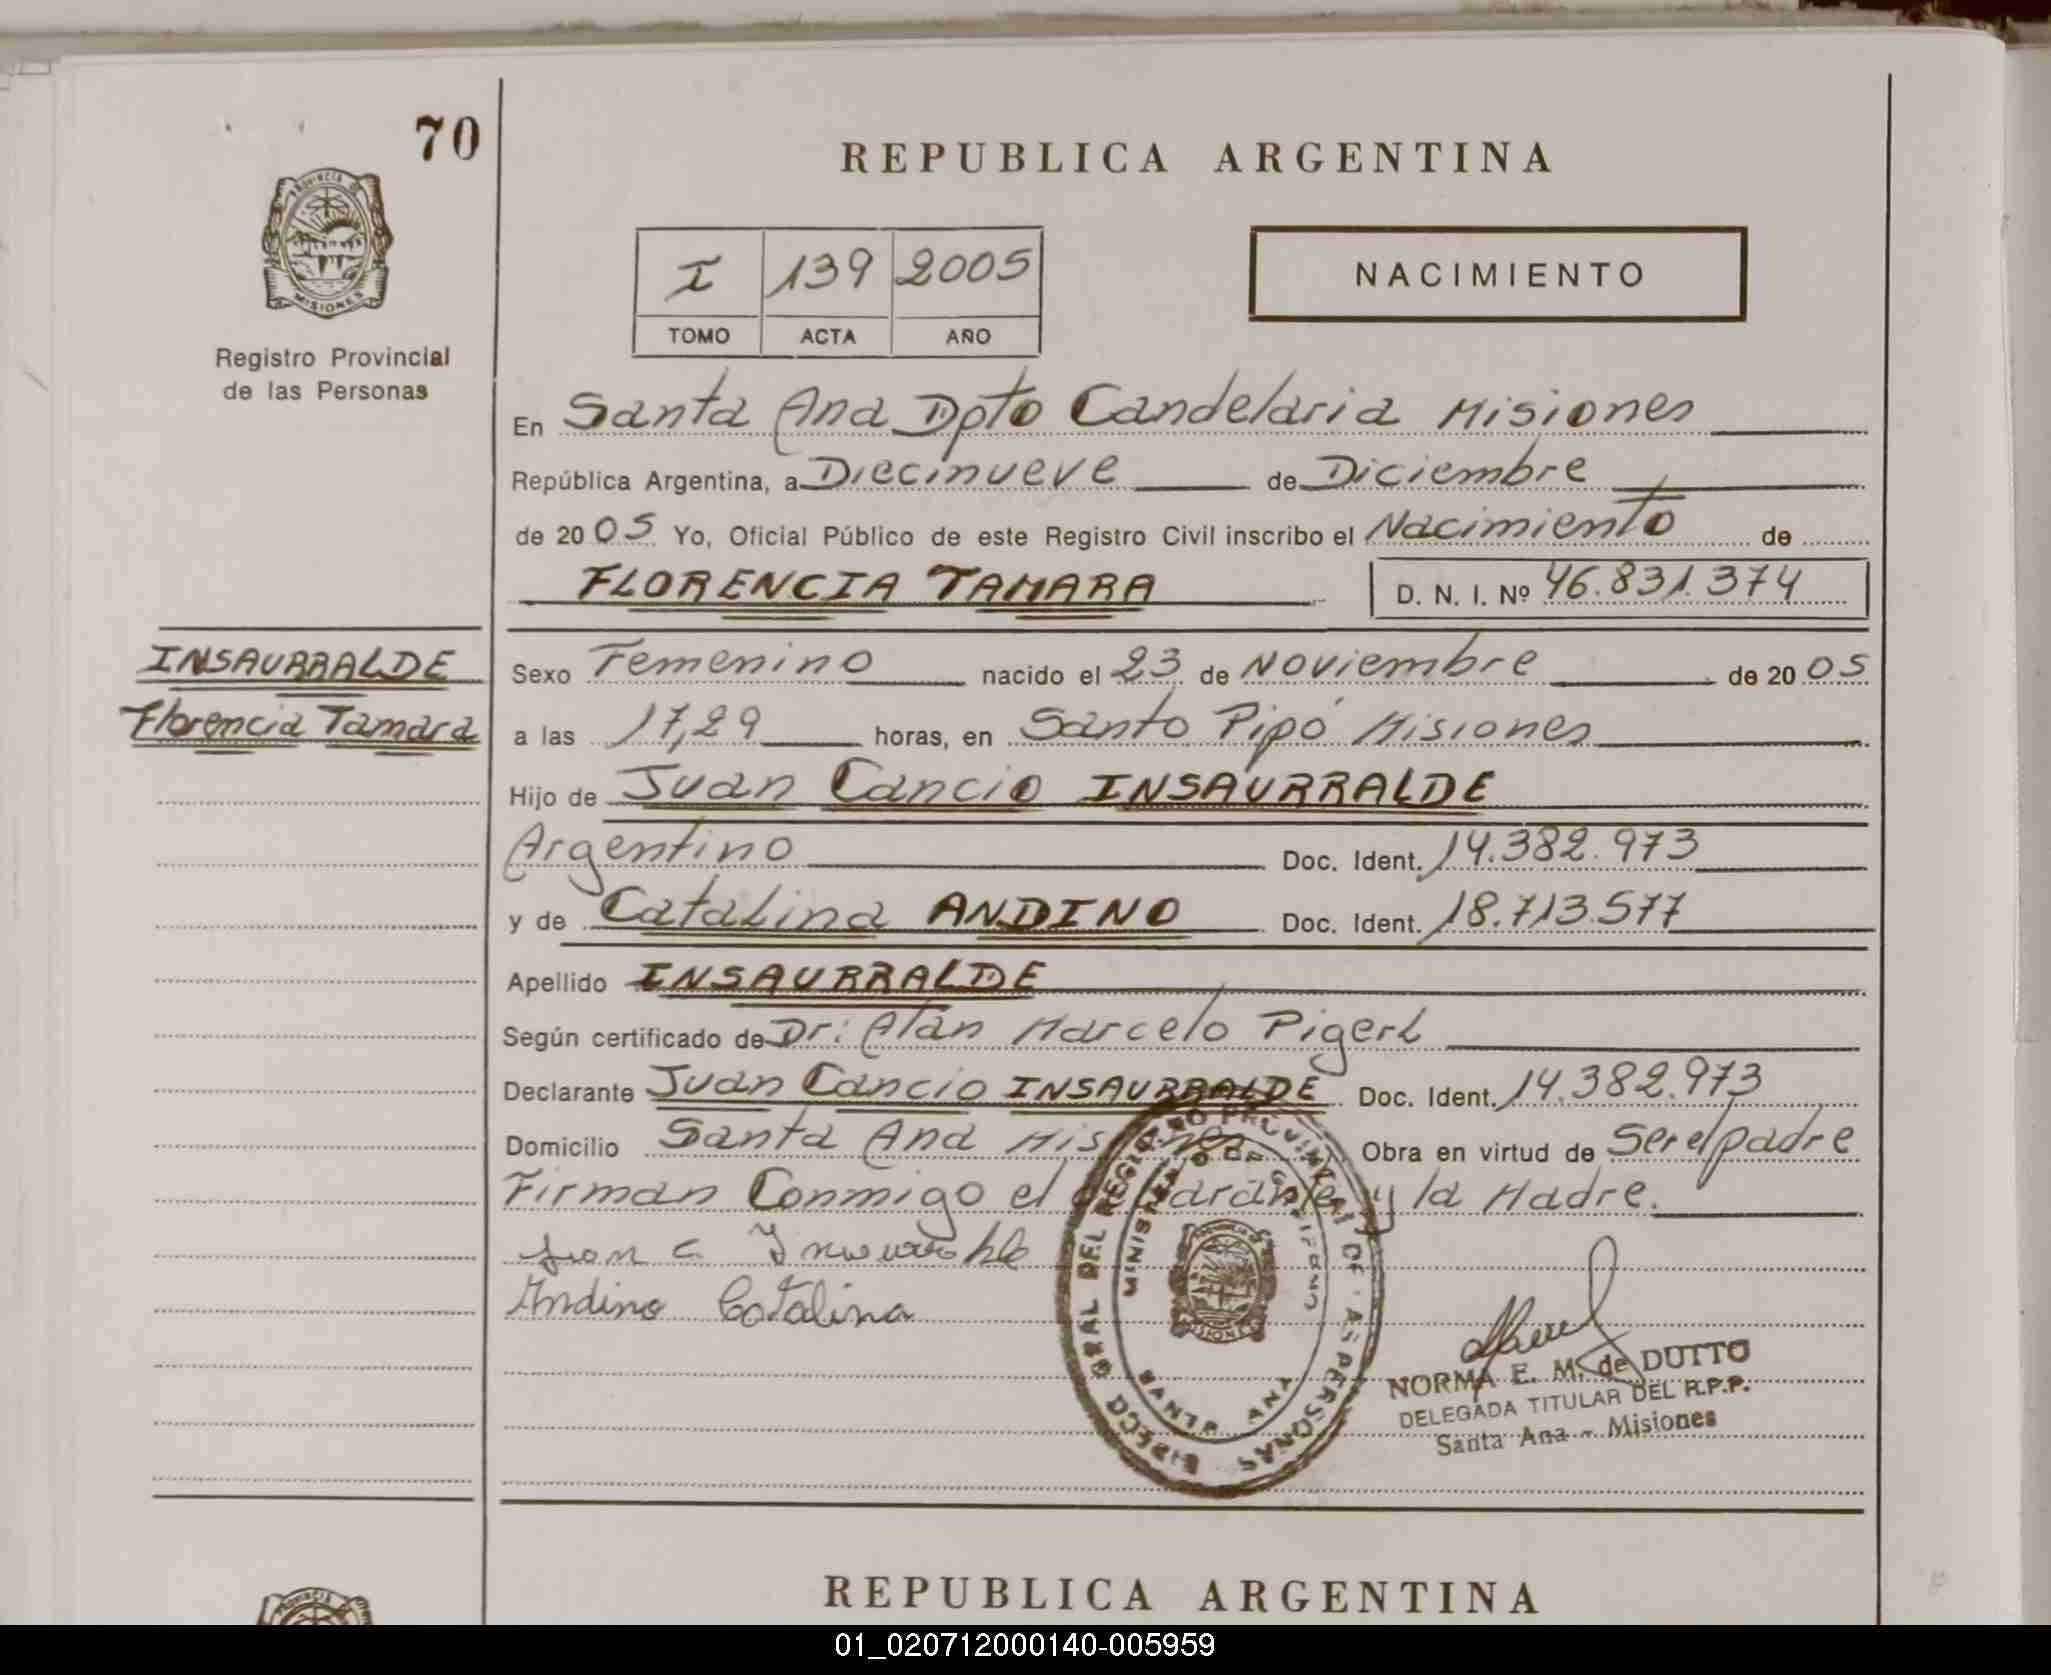 70
PROVINCIA DE
MISIONES
Registro Provincial
de las Personas
REPUBLICA ARGENTINA
I 139 2005
TOMO ACTA AÑO
NACIMIENTO
En Santa Ana Dpto Candelaria Misiones
República Argentina, a Diecinueve de Diciembre
de 2005 Yo, Oficial Público de este Registro Civil inscribo el Nacimiento de
FLORENCIA TAMARA D. N. I. Nº 46.831.374
INSAURRALDE
Florencia Tamara
Sexo Femenino nacido el 23 de Noviembre de 2005
a las 17,29 horas, en Santo Pipó Misiones
Hijo de Juan Cancio INSAURRALDE
Argentino Doc. Ident. 14.382.973
y de Catalina ANDINO Doc. Ident. 18.713.577
Apellido INSAURRALDE
Según certificado de Dr: Alan Marcelo Pigerl
Declarante Juan Cancio INSAURRALDE Doc. Ident. 14.382.973
Domicilio Santa Ana Misiones Obra en virtud de Ser el padre
Firman Conmigo el declarante y la Madre.
Juan C. Insaurralde
Andino Catalina
GRAL DEL REGISTRO PROVINCIAL DE LAS PERSONAS
MINISTERIO DE GOBIERNO
SANTA ANA
MISIONES
NORMA E. M. de DUTTO
DELEGADA TITULAR DEL R.P.P.
Santa Ana - Misiones
REPUBLICA ARGENTINA
PROVINCIA DE
01_020712000140-005959